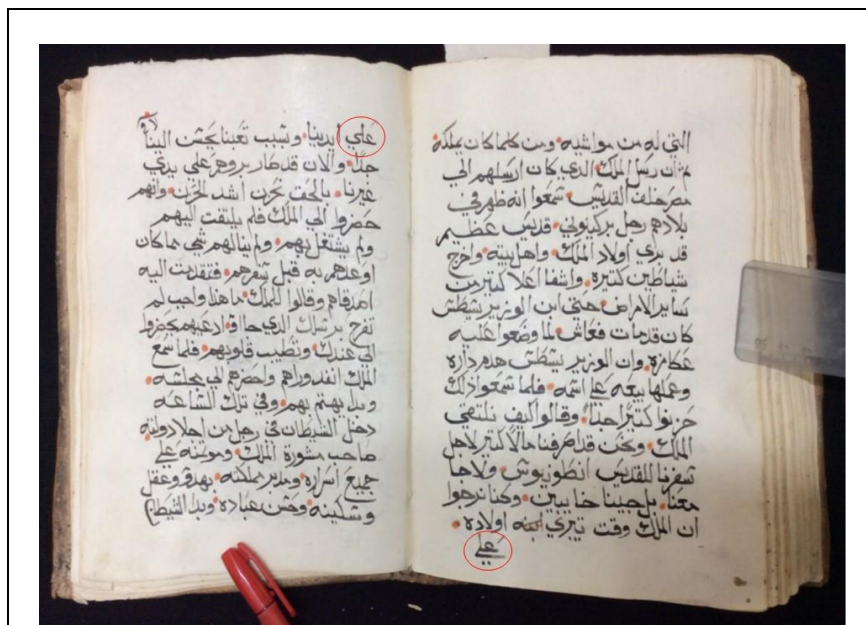 التي له من مواشيه ومن كلما كان يملكه
ثم ان رسل الملك الدي كان ارسلهم الي
القديس سمعوا انه ظهر في
بلادهم رجل قديس عظيم
قد بري اولاد الملك واهل بيته واخرج
شياطين كتيره واشفا اعلا كتير من
ساير الامراض حتي ابن الوزير بشطش
كان قد مات فعاش لما وضعوا عليه
عكازه وان الوزير بشطش هدم داره
وعملها بيعه علي اسمه فلما سمعوا دلك
حزنوا كتيرا جدا وقالوا كيف نلتقي
الملك ونحن قد اصرفنا مالا كتير لاجل
سفرنا للقديس انطونيوس ولاجا
معنا بل جينا خايبين وكنا نرجوا
ان الملك وقت تبري اولاده
علي
علي ايدينا وبسبب تعبنا يحسن الينا
جدا والان قد صار بروهم علي يدي
غيرنا بالحق نحزن اشد الحزن وانهم
حضروا الي الملك فلم يلتفت اليهم
ولم يشتغل بهم ولم ينالهم شي مما كان
اوعدهم به قبل سفرهم فتقدمت اليه
اصدقاهم وقالوا للملك ما هدا واجب لم
تفرح برسلك الدي جاوا ادعيهم يحضروا
الي عندك وتطيب قلوبهم فلما سمع
الملك انفد وراهم واحضرهم الي مجلسه
وبدا يهتم بهم وفي تلك الساعه
دخل الشيطان في رجل من اجلا دولته
صاحب مشورة الملك وموتمنه علي
جميع اسراره ومدبر مملكته بهدو وعقل
وسكينه وحسن عباده وبدا الشيطان